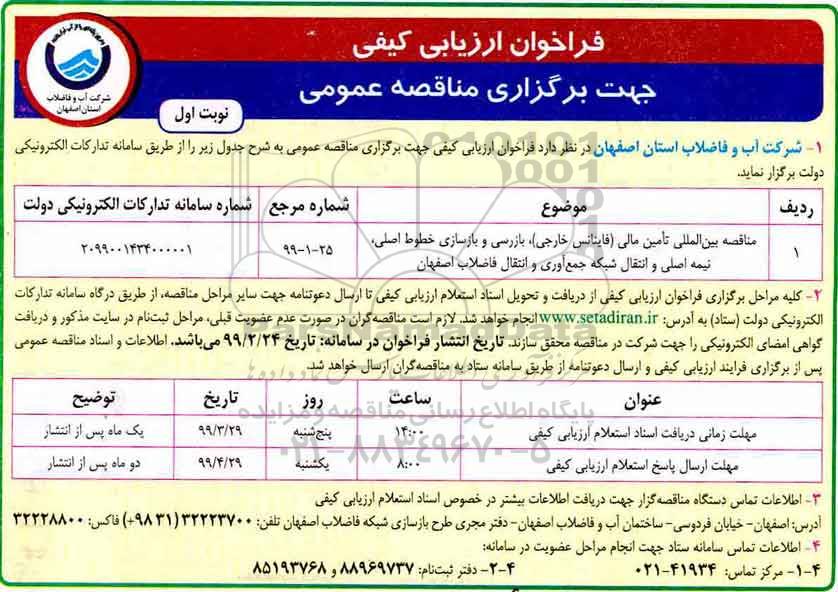 فراخوان ارزیابی کیفی
جهت برگزاری مناقصه عمومی
شرکت آب و فاضلاب
استان اصفهان
نوبت اول
۱- شرکت آب و فاضلاب استان اصفهان در نظر دارد فراخوان ارزیابی کیفی جهت برگزاری مناقصه عمومی به شرح جدول زیر را از طریق سامانه تدارکات الکترونیکی
دولت برگزار نماید.
ردیف موضوع شماره مرجع شماره سامانه تدارکات الکترونیکی دولت
۱ مناقصه بین‌المللی تأمین مالی (فاینانس خارجی)، بازرسی و بازسازی خطوط اصلی، نیمه اصلی و انتقال شبکه جمع‌آوری و انتقال فاضلاب اصفهان ۹۹-۱-۲۵ ۲۰۹۹۰۰۱۴۳۴۰۰۰۰۰۱
۲- کلیه مراحل برگزاری فراخوان ارزیابی کیفی از دریافت و تحویل اسناد استعلام ارزیابی کیفی تا ارسال دعوتنامه جهت سایر مراحل مناقصه، از طریق درگاه سامانه تدارکات
الکترونیکی دولت (ستاد) به آدرس: www.setadiran.ir انجام خواهد شد. لازم است مناقصه‌گران در صورت عدم عضویت قبلی، مراحل ثبت‌نام در سایت مذکور و دریافت
گواهی امضای الکترونیکی را جهت شرکت در مناقصه محقق سازند. تاریخ انتشار فراخوان در سامانه: تاریخ ۹۹/۲/۲۴ می‌باشد. اطلاعات و اسناد مناقصه عمومی
پس از برگزاری فرایند ارزیابی کیفی و ارسال دعوتنامه از طریق سامانه ستاد به مناقصه‌گران ارسال خواهد شد.
عنوان ساعت روز تاریخ توضیح
مهلت زمانی دریافت اسناد استعلام ارزیابی کیفی ۱۴:۰۰ پنج‌شنبه ۹۹/۳/۲۹ یک ماه پس از انتشار
مهلت ارسال پاسخ استعلام ارزیابی کیفی ۸:۰۰ یکشنبه ۹۹/۴/۲۹ دو ماه پس از انتشار
۳- اطلاعات تماس دستگاه مناقصه‌گزار جهت دریافت اطلاعات بیشتر در خصوص اسناد استعلام ارزیابی کیفی
آدرس: اصفهان- خیابان فردوسی- ساختمان آب و فاضلاب اصفهان- دفتر مجری طرح بازسازی شبکه فاضلاب اصفهان تلفن: ۳۲۲۲۳۷۰۰ (۳۱ ۹۸+) فاکس: ۳۲۲۲۸۸۰۰
۴- اطلاعات تماس سامانه ستاد جهت انجام مراحل عضویت در سامانه:
۴-۱- مرکز تماس: ۴۱۹۳۴-۰۲۱ ۴-۲- دفتر ثبت‌نام: ۸۸۹۶۹۷۳۷ و ۸۵۱۹۳۷۶۸
ParsNamadData
پایگاه اطلاع رسانی مناقصه و مزایده
۰۲۱-۸۸۳۴۹۶۷۰-۵